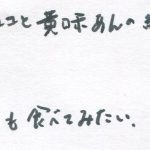 コと黄味あんの
も食べてみたい.